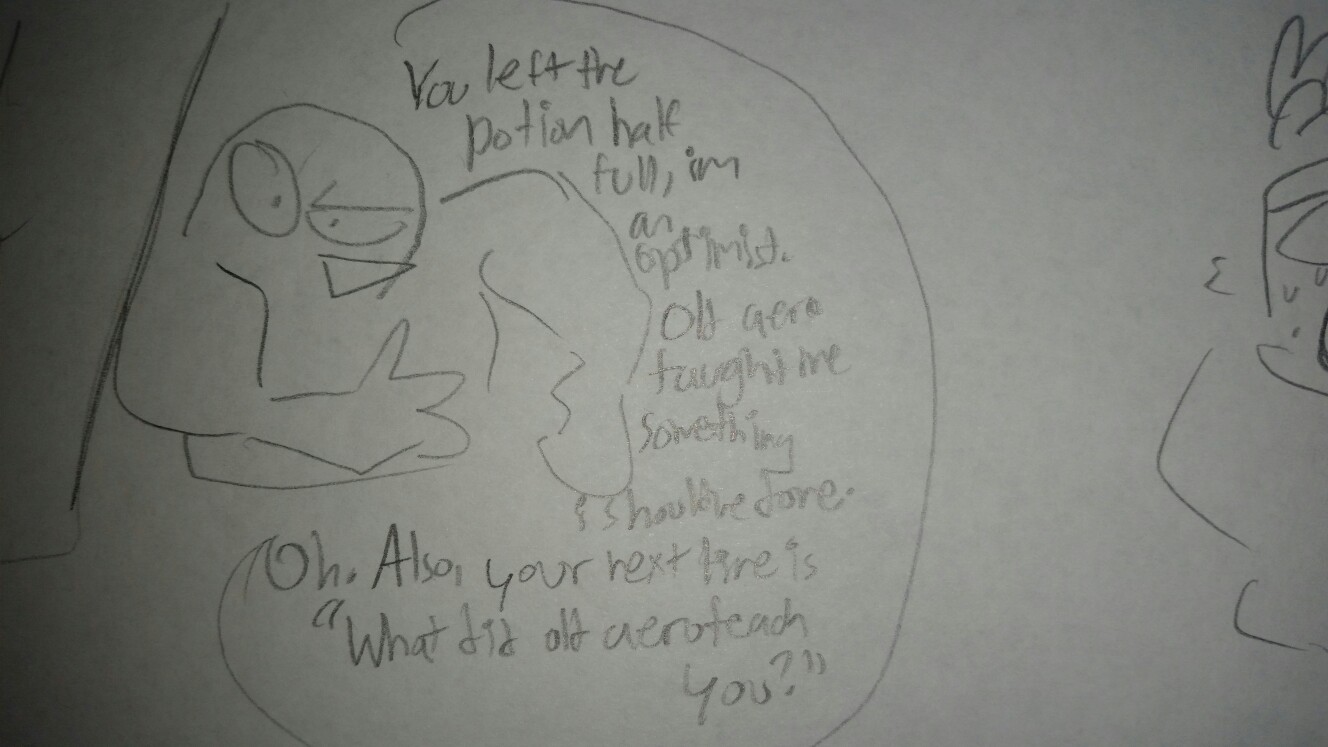 You left the
potion half
full, im
an
optimist.
Old aero
taught me
something
i should've done.
Oh. Also, your next line is
"What did old aero teach
you?"